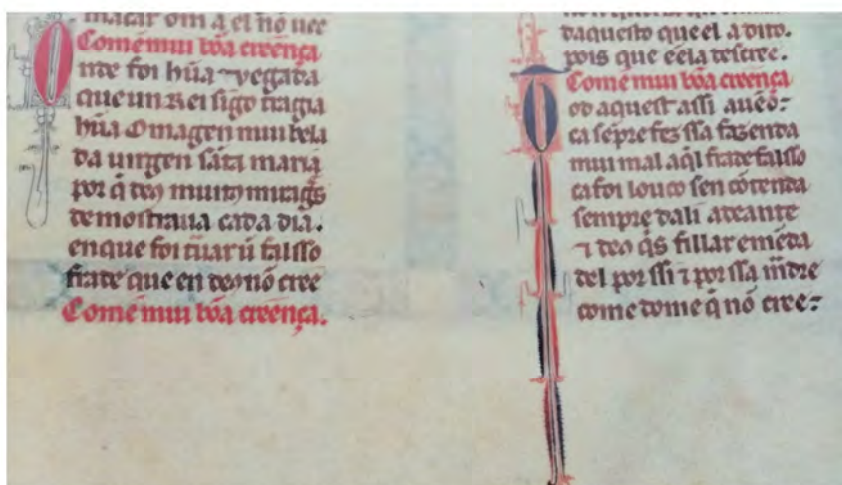 macar om a el nõ uee
Comé mui bõa creença
Onde foi hũa uegada
que un Rei sigo tragia
hũa Omagen mui bela
da uirgen sãta maria
por q̃ de9 muit9 miragֿs
demostraua cada dia.
en que foi trauar ũ falsso
frade que en de9 nõ cree
Comé mui bõa creença.
daquesto que el a dito.
pois que eela descree.
Comé mui bõa creença
Tod aquest assi aueo:
ca sẽpre fez ssa fazenda
mui mal aq̃l frade falsso
ca foi louco sen cõtenda
sempre dali adeante
⁊ de9 q̇s fillar emẽda
del por ssi ⁊ por ssa mãdre
come dome q̃ nõ cree: